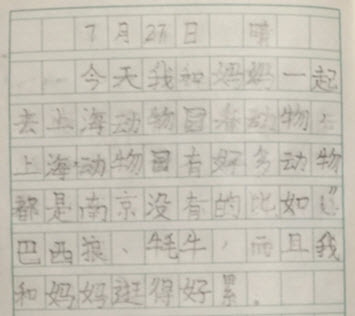 7月27日 晴
今天我和妈妈一起
去上海动物园看动物，
上海动物园有好多动物
都是南京没有的比如：
巴西狼、牦牛，而且我
和妈妈逛得好累。